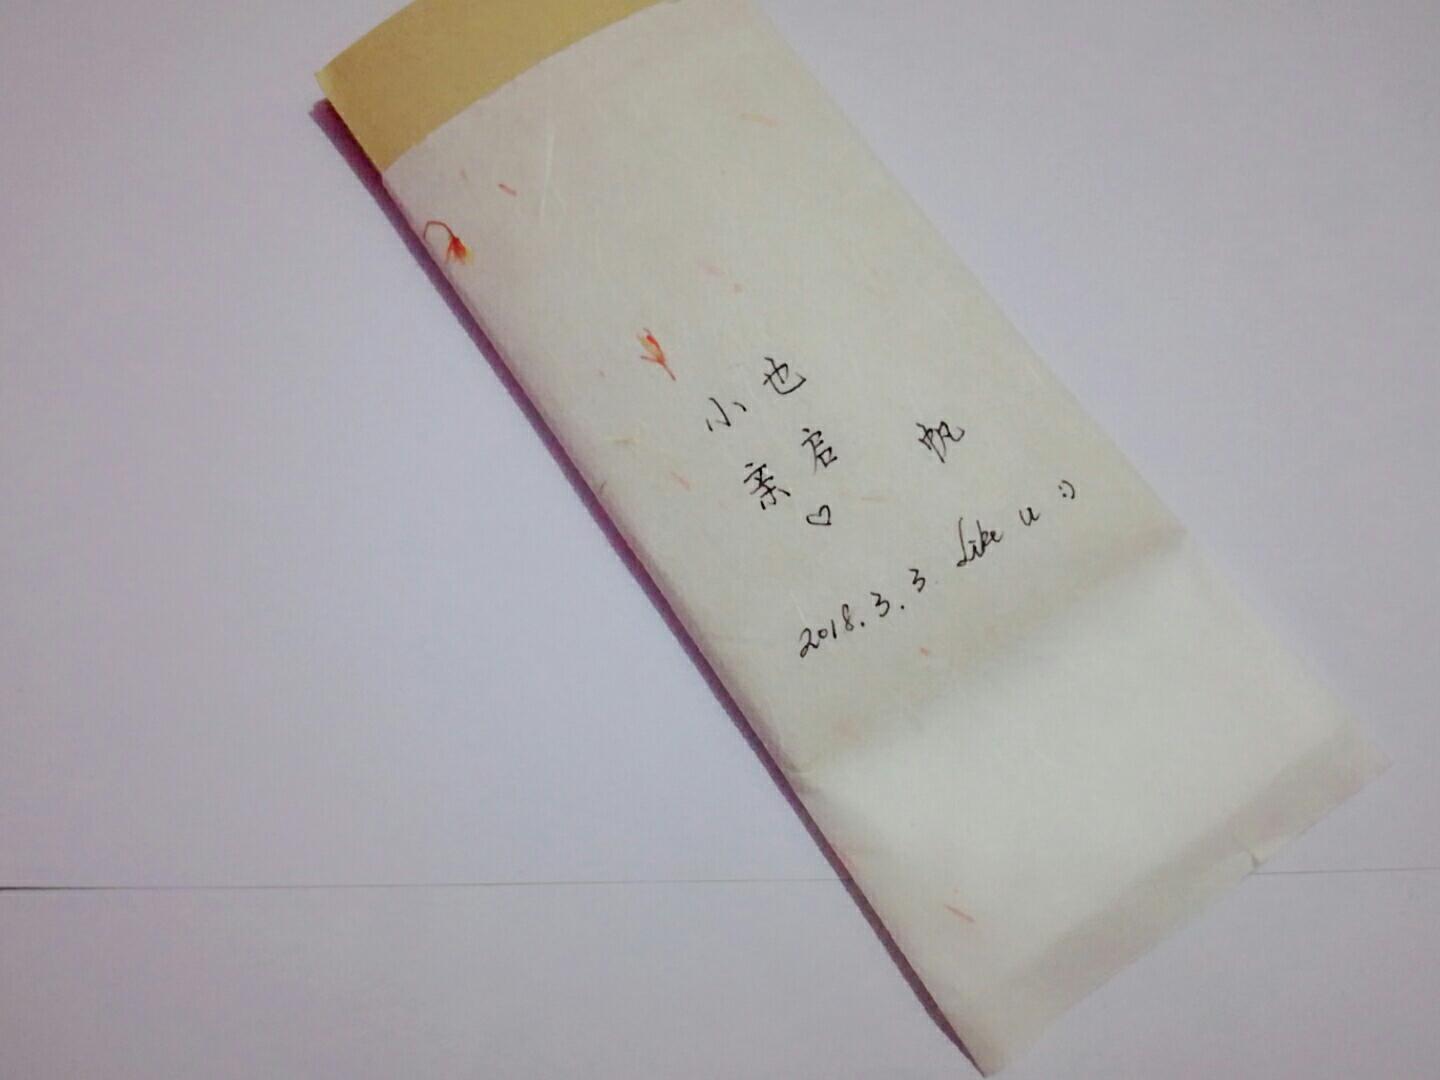 小也
亲启
♡
帆
2018.3.3. Like u :)